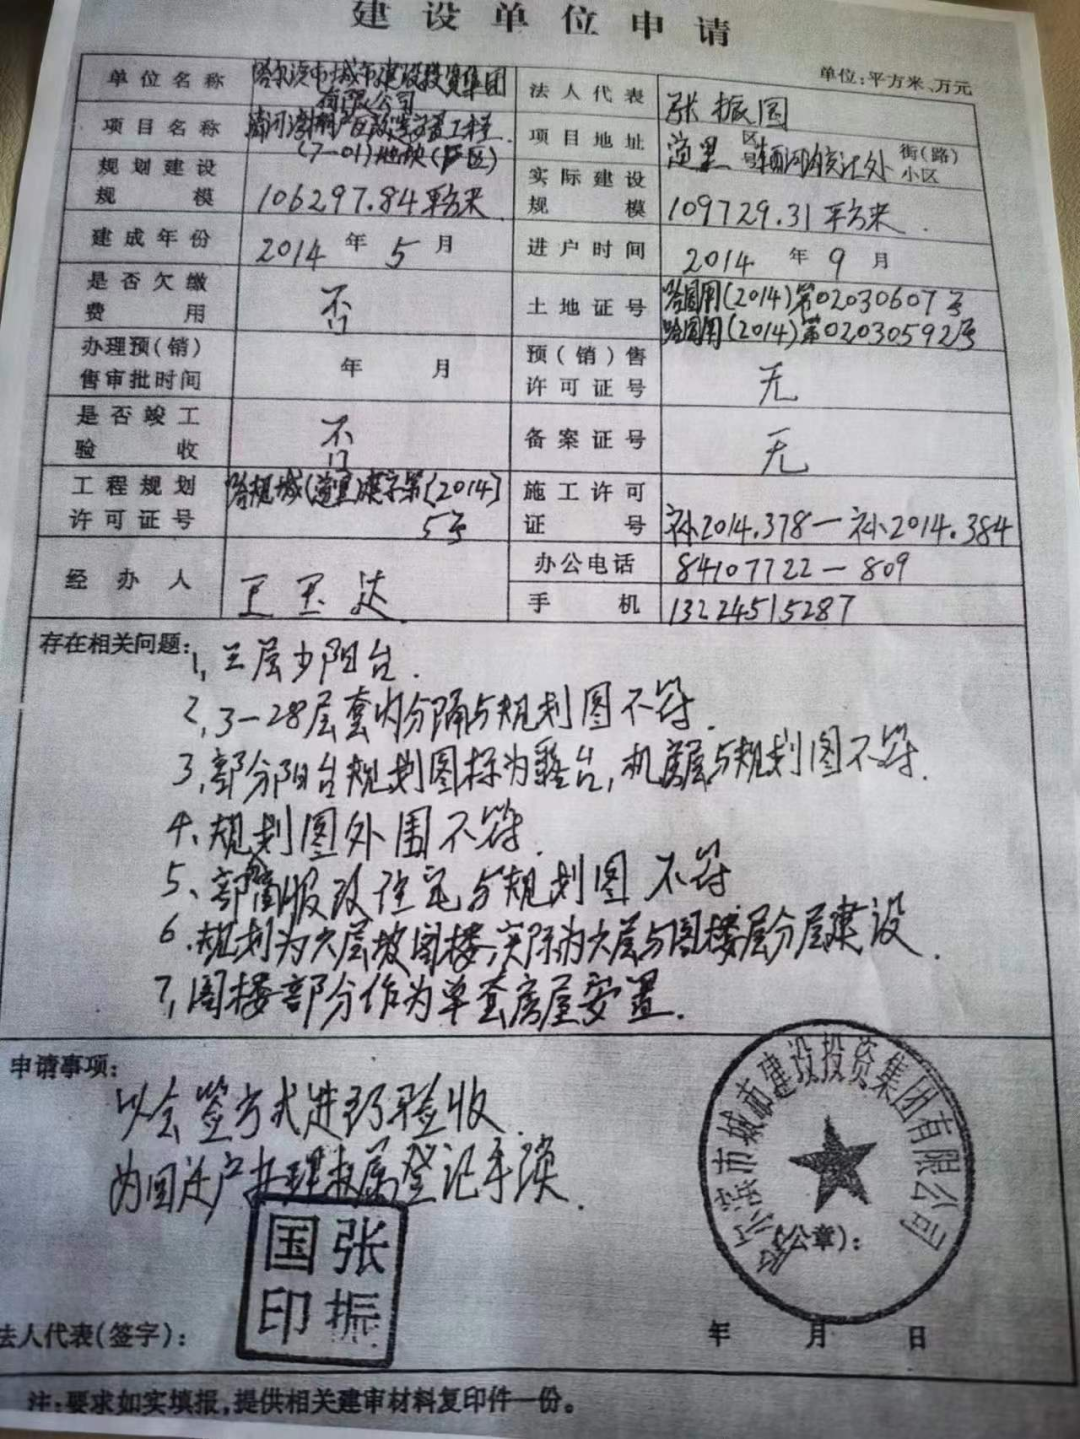 建设单位申请
单位:平方米、万元
单位名称 哈尔滨市城市建设投资集团有限公司 法人代表 张振国
项目名称 棚户区改造安置工程(7-01)地块( 区) 项目地址 道里 区 号 街(路) 小区
规划建设规模 106297.84平方米 实际建设规模 109729.31平方米.
建成年份 2014年5月 进户时间 2014年9月
是否欠缴费用 否 土地证号 哈国用(2014)第02030607号
哈国用(2014)第02030592号
办理预(销)售审批时间 年 月 预(销)售许可证号 无
是否竣工验收 否 备案证号 无
工程规划许可证号 哈规城(道里)建字第[2014]5号 施工许可证号 补2014.378—补2014.384
经办人 王玉达 办公电话 84107722—809
手机 13224515287
存在相关问题:
1,三层少阳台.
2,3-28层套内分隔与规划图不符.
3,部分阳台规划图标为露台,机房层与规划图不符.
4、规划图外围不符.
5、部分 改住宅与规划图不符
6.规划为六层坡阁楼,实际为六层与阁楼层分层建设.
7,阁楼部分作为单套房屋安置.
申请事项:
以会签方式进行验收
为回迁户办理权属登记手续.
哈尔滨市城市建设投资集团有限公司
(公章):
张振国印
法人代表(签字): 年 月 日
注:要求如实填报,提供相关建审材料复印件一份。